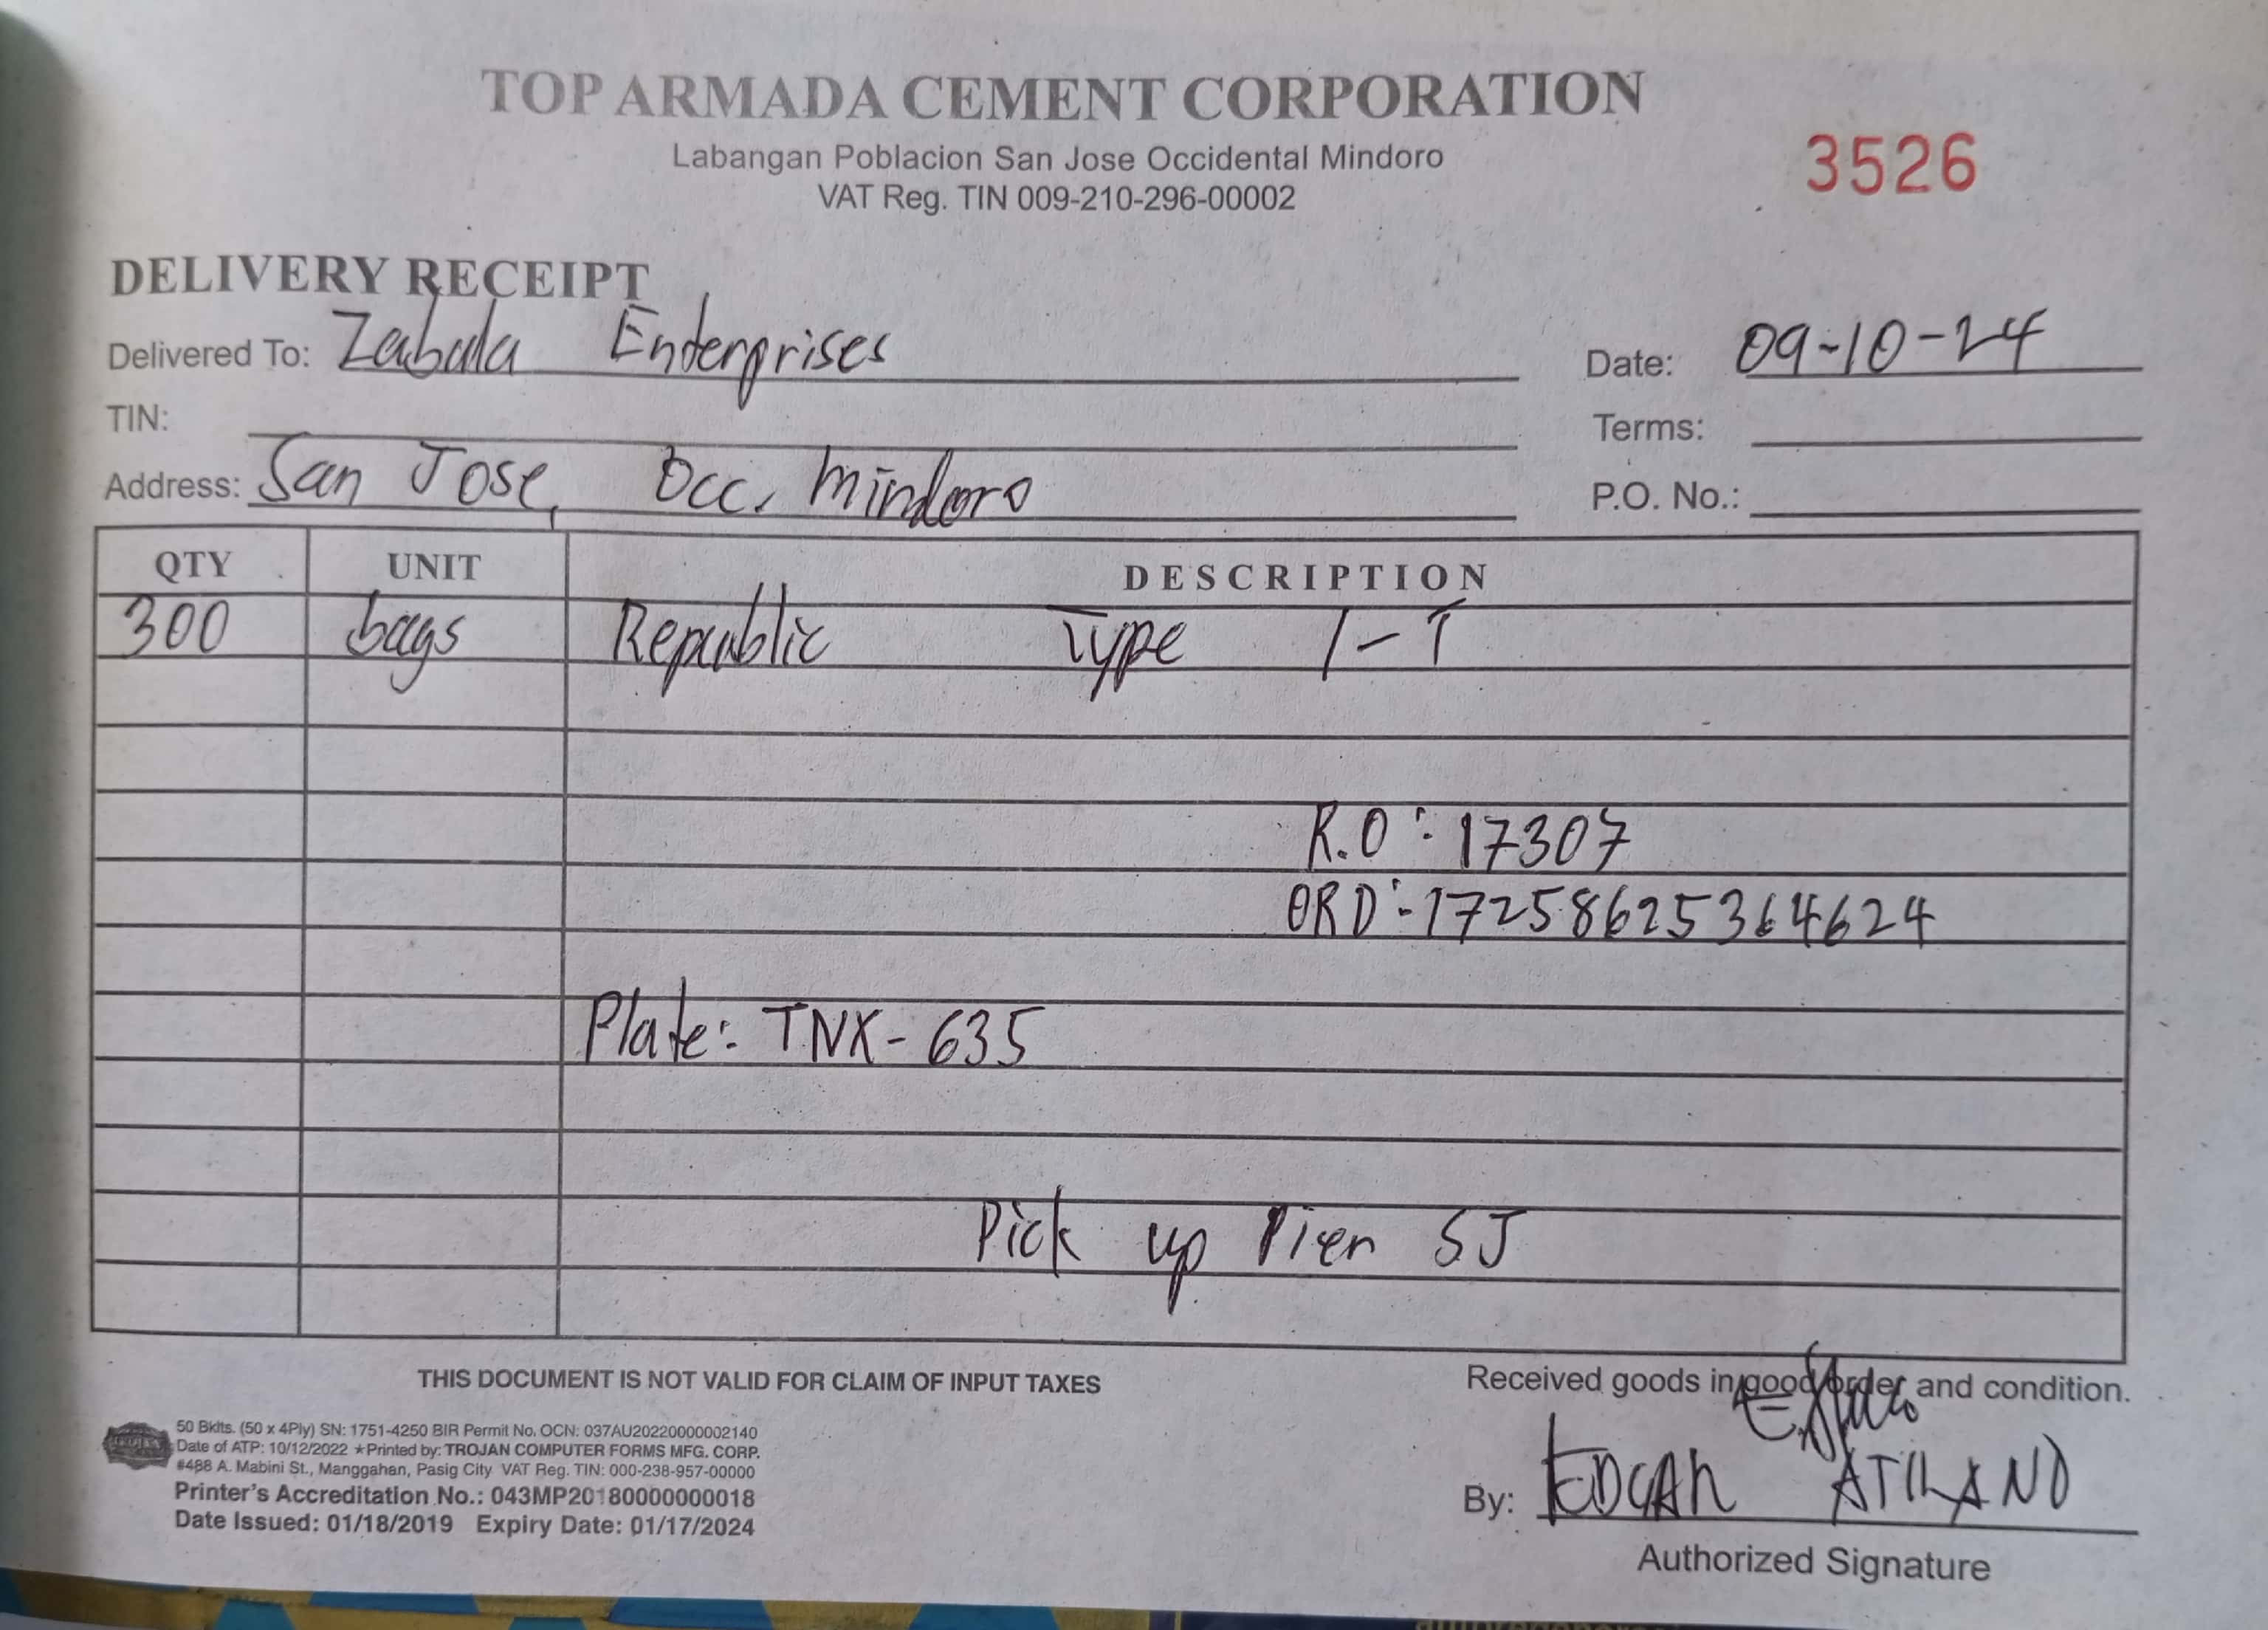 TOP ARMADA CEMENT CORPORATION
Labangan Poblacion San Jose Occidental Mindoro
VAT Reg. TIN 009-210-296-00002
3526
DELIVERY RECEIPT
Delivered To: Zabala Enterprises
Date: 09-10-24
TIN:
Terms:
Address: San Jose, Occ. Mindoro
P.O. No.:
QTY UNIT DESCRIPTION
300 bags Republic Type 1-T
R.O: 17307
ORD: 17258625364624
Plate: TNX-635
Pick up Pier SJ
THIS DOCUMENT IS NOT VALID FOR CLAIM OF INPUT TAXES
Received goods in good order and condition.
50 Bklts. (50 x 4Ply) SN: 1751-4250 BIR Permit No. OCN: 037AU20220000002140
Date of ATP: 10/12/2022 ★Printed by: TROJAN COMPUTER FORMS MFG. CORP.
#488 A. Mabini St., Manggahan, Pasig City VAT Reg. TIN: 000-238-957-00000
Printer's Accreditation No.: 043MP20180000000018
Date Issued: 01/18/2019 Expiry Date: 01/17/2024
By: EDGAR ATILANO
Authorized Signature